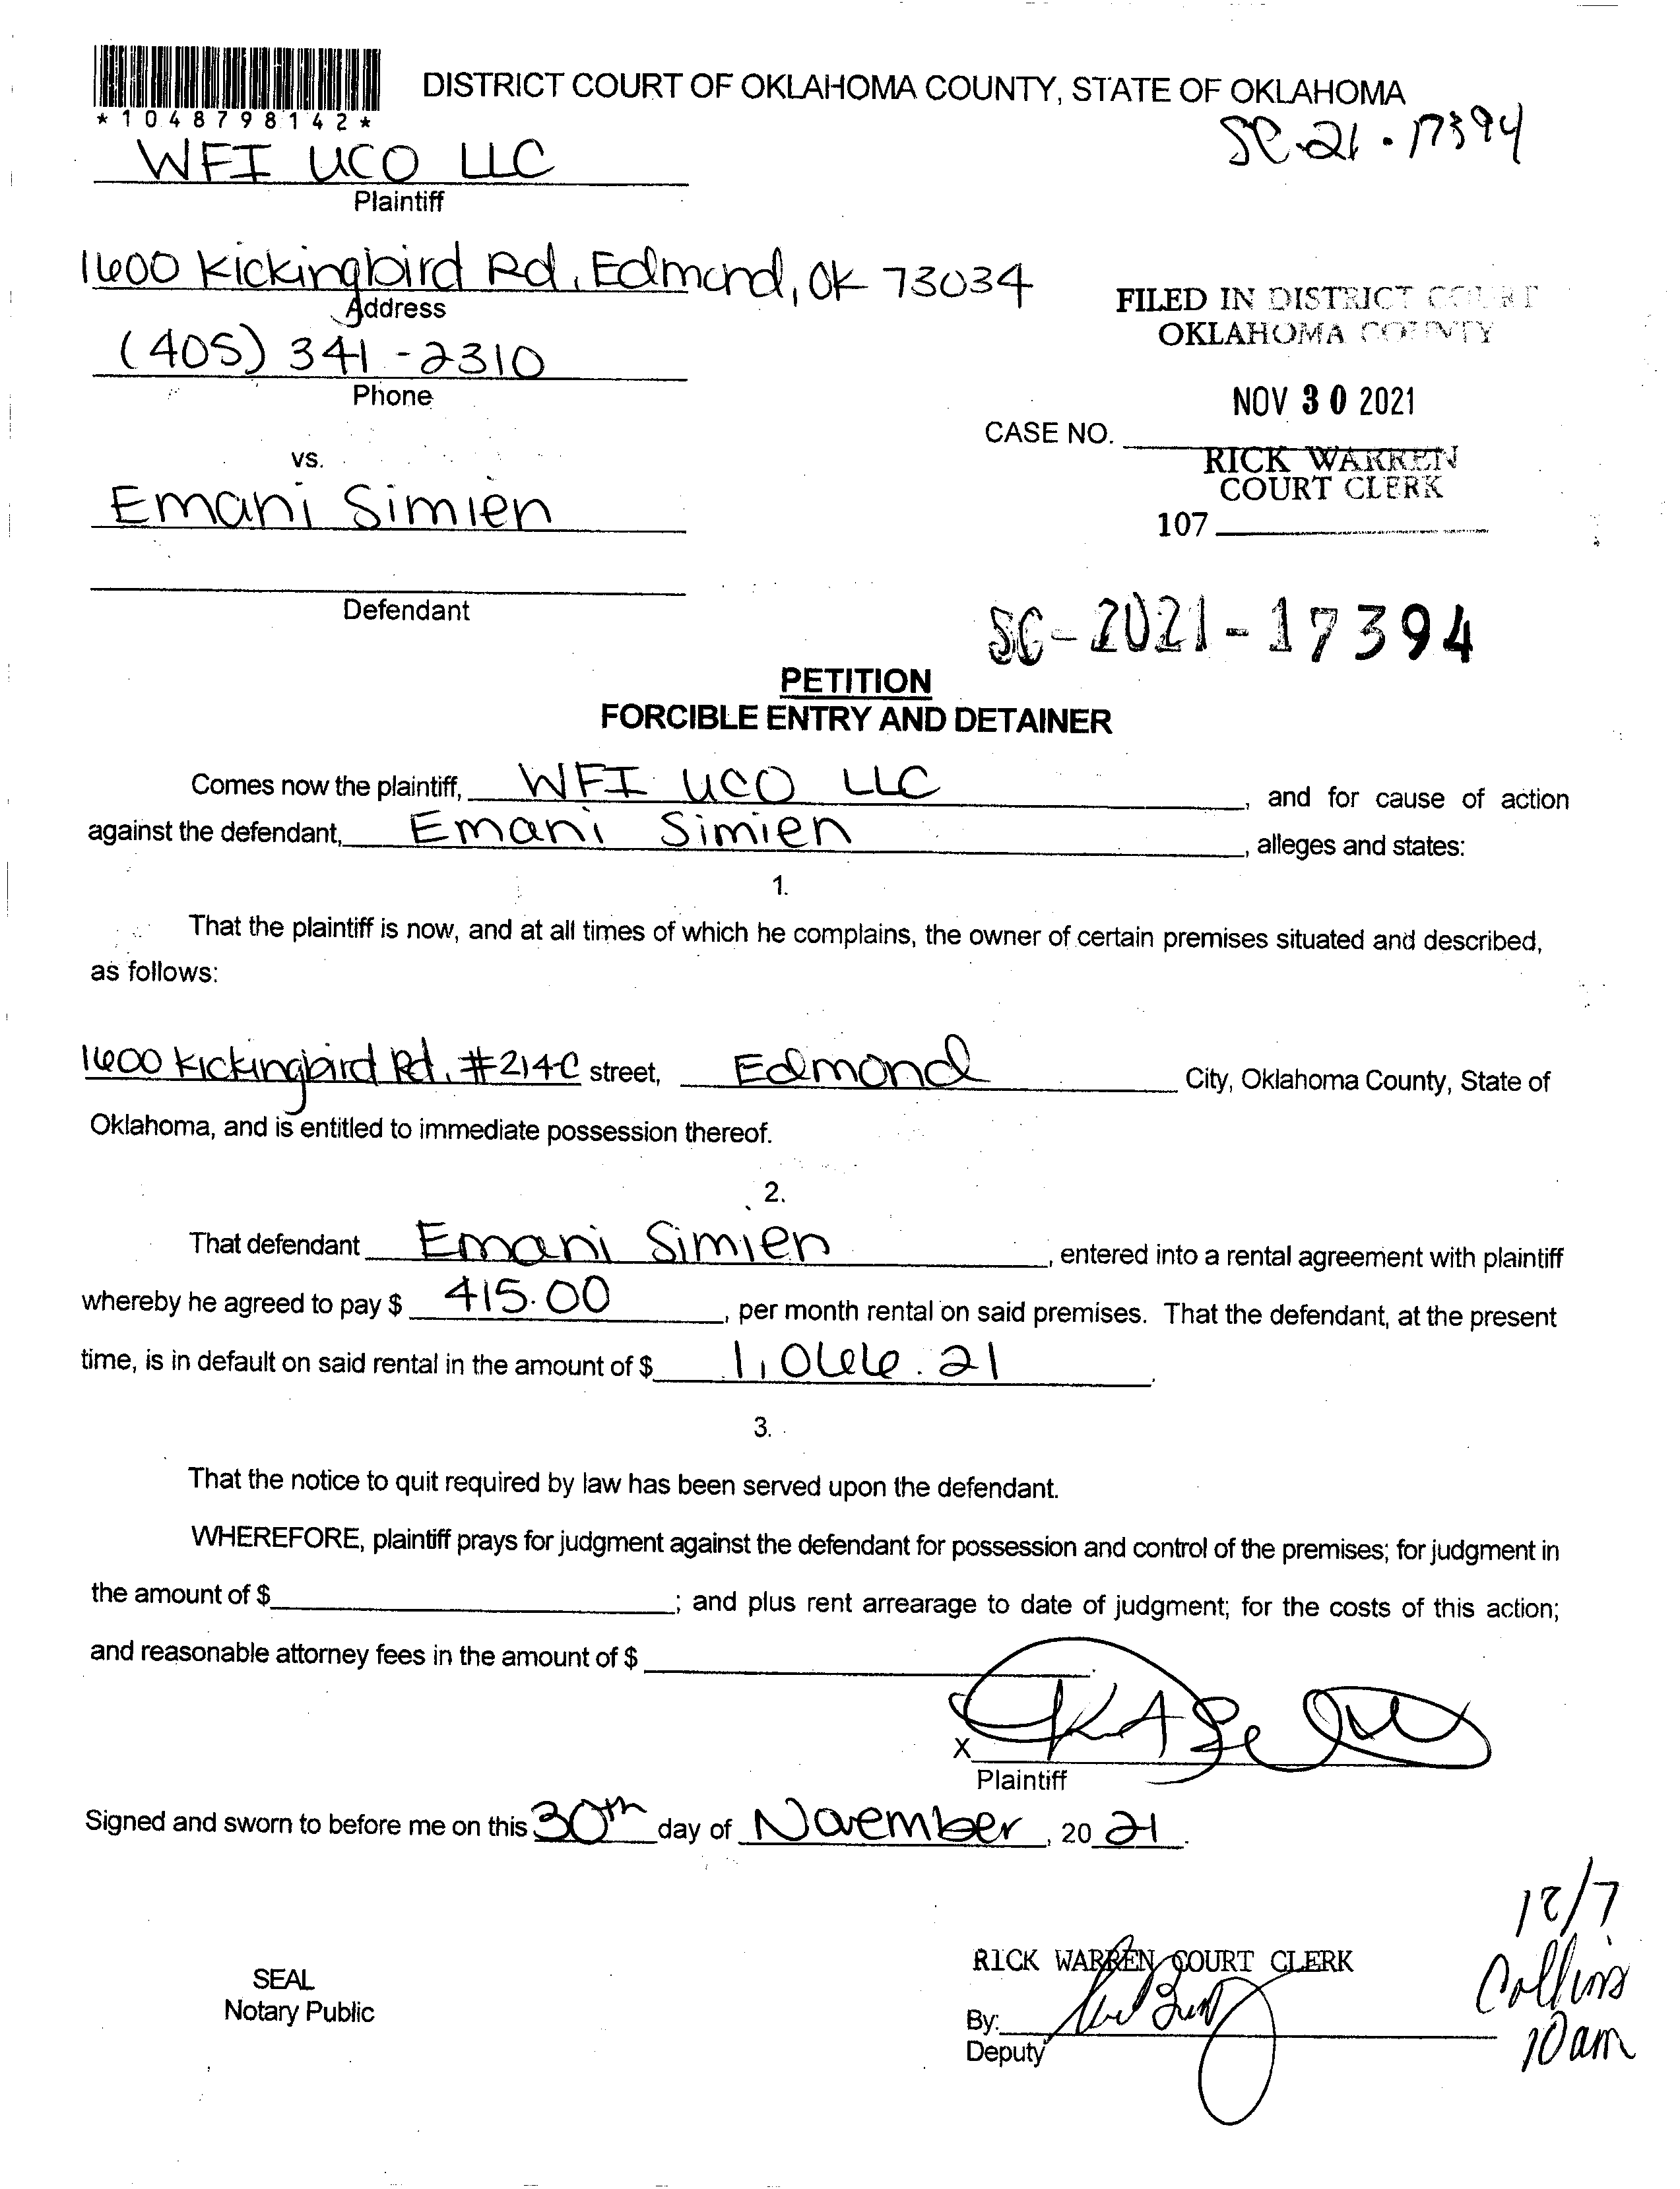 DISTRICT COURT OF OKLAHOMA COUNTY, STATE OF OKLAHOMA
*1048798142*
SC-21-17394
WFI UCO LLC
Plaintiff
1600 Kickingbird Rd, Edmond, OK 73034
Address
FILED IN DISTRICT COURT
OKLAHOMA COUNTY
(405) 341-2310
Phone
NOV 30 2021
CASE NO.
RICK WARREN
COURT CLERK
vs.
107
Emani Simien
Defendant
SC-2021-17394
PETITION
FORCIBLE ENTRY AND DETAINER
Comes now the plaintiff, WFI UCO LLC, and for cause of action
against the defendant, Emani Simien, alleges and states:
1.
That the plaintiff is now, and at all times of which he complains, the owner of certain premises situated and described,
as follows:
1600 Kickingbird Rd. #214C street, Edmond City, Oklahoma County, State of
Oklahoma, and is entitled to immediate possession thereof.
2.
That defendant Emani Simien, entered into a rental agreement with plaintiff
whereby he agreed to pay $ 415.00, per month rental on said premises. That the defendant, at the present
time, is in default on said rental in the amount of $ 1,066.21.
3.
That the notice to quit required by law has been served upon the defendant.
WHEREFORE, plaintiff prays for judgment against the defendant for possession and control of the premises; for judgment in
the amount of $; and plus rent arrearage to date of judgment; for the costs of this action;
and reasonable attorney fees in the amount of $.
X
Plaintiff
Signed and sworn to before me on this 30th day of November, 2021.
12/7
Collins
10am
RICK WARREN COURT CLERK
SEAL
Notary Public
By:
Deputy